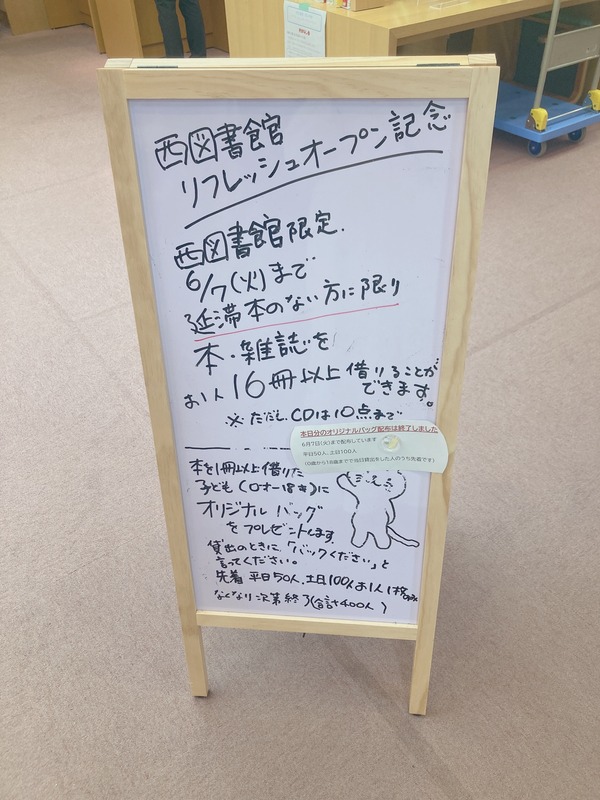 西図書館
リフレッシュオープン記念
西図書館限定.
6/7(火)まで
延滞本のない方に限り
本・雑誌を
お1人16冊以上借りることが
できます。
※ただし CDは10点まで
本日分のオリジナルバッグ配布は終了しました
6月7日(火)まで配布しています
平日50人、土日100人
(0歳から18歳までで当日貸出をした人のうち先着です)
本を1冊以上借りた
子ども(0才-18才)に
オリジナル バッグ
をプレゼントします.
貸出のときに、「バックください」と
言ってください。
先着 平日50人、土日100人 お1人1枚
なくなり次第終了(合計400人)